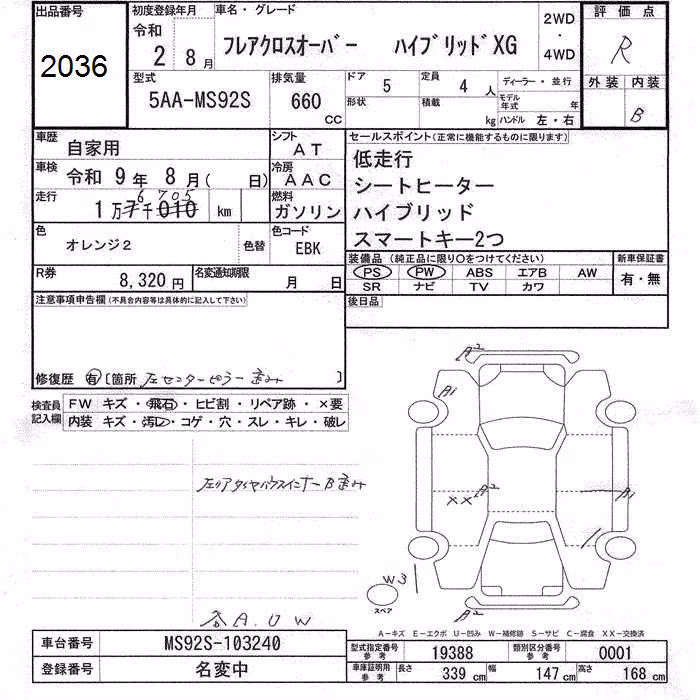 出品番号 初度登録年月 車名・グレード 2WD・4WD 評価点
2036 令和 2 8月 フレアクロスオーバー ハイブリッドXG R
型式 排気量 ドア 定員 ディーラー・並行 外装 内装
5AA-MS92S 660 CC 5 4人 モデル年式 年 B
形状 積載 kg ハンドル 左・右
車歴 自家用 シフト AT セールスポイント(正常に機能するものに限ります)
車検 令和 9年 8月( 日) 冷房 AAC 低走行
シートヒーター
走行 1万7千010 km 燃料 ガソリン ハイブリッド
6 705
色 オレンジ2 色替 色コード EBK スマートキー2つ
装備品(純正品に限り○をつけてください) 新車保証書
R券 8,320円 名変通知期限 月 日 PS PW ABS エアB AW 有・無
SR ナビ TV カワ
注意事項申告欄(不具合内容等は具体的に記入して下さい) 後日品
修復歴 有 [箇所 左センターピラー歪み ]
検査員記入欄 FW キズ・飛石・ヒビ割・リペア跡・×要
内装 キズ・汚レ・コゲ・穴・スレ・キレ・破レ
A2
A1
左リアタイヤハウスインナーB歪み
XX A2 B1
W3
スペア
A2
各A.U W
A-キズ E-エクボ U-凹み W-補修跡 S-サビ C-腐食 XX-交換済
車台番号 MS92S-103240 型式指定番号 参考 19388 類別区分番号 参考 0001
登録番号 名変中 車庫証明用 参考 長さ 339 cm 幅 147 cm 高さ 168 cm